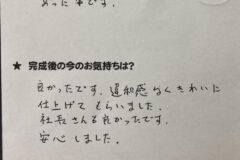 あった事です。
★ 完成後の今のお気持ちは?
良かったです。違和感なくきれいに
仕上げてもらいました。
社長さんも良かったです。
安心しました。